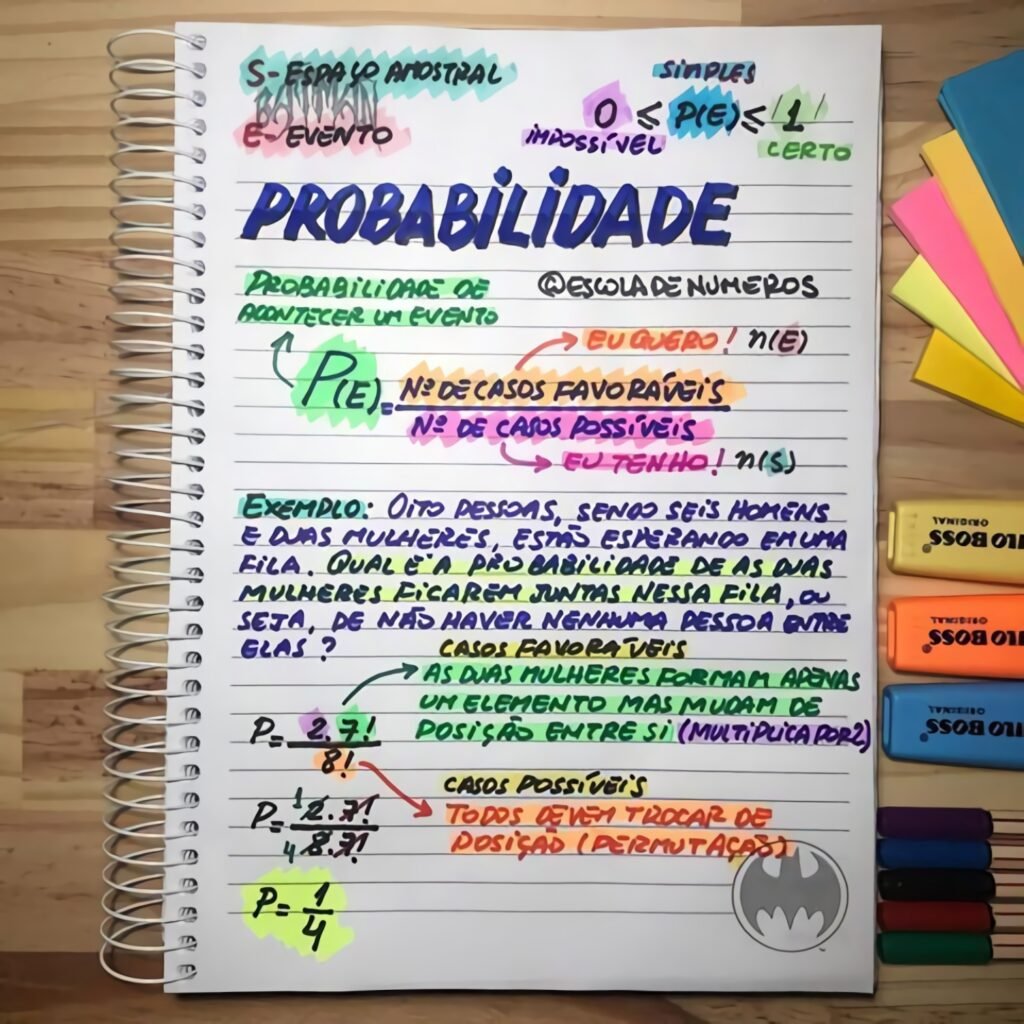 S- ESPAÇO AMOSTRAL
BATMAN
E- EVENTO
SIMPLES
0 ≤ P(E) ≤ 1
IMPOSSÍVEL
CERTO
PROBABILIDADE
PROBABILIDADE DE
ACONTECER UM EVENTO
@ESCOLADENUMEROS
EU QUERO! n(E)
P(E) = Nº DE CASOS FAVORÁVEIS
Nº DE CASOS POSSÍVEIS
EU TENHO! n(S)
EXEMPLO: OITO PESSOAS, SENDO SEIS HOMENS
E DUAS MULHERES, ESTÃO ESPERANDO EM UMA
FILA. QUAL É A PROBABILIDADE DE AS DUAS
MULHERES FICAREM JUNTAS NESSA FILA, OU
SEJA, DE NÃO HAVER NENHUMA PESSOA ENTRE
ELAS?
CASOS FAVORÁVEIS
AS DUAS MULHERES FORMAM APENAS
UM ELEMENTO MAS MUDAM DE
POSIÇÃO ENTRE SI (MULTIPLICA POR 2)
P= 2.7!
8!
CASOS POSSÍVEIS
TODOS DEVEM TROCAR DE
POSIÇÃO (PERMUTAÇÃO)
P= 1 2.7!
4 8.7!
P= 1
4
STABILO BOSS
ORIGINAL
STABILO BOSS
ORIGINAL
STABILO BOSS
ORIGINAL